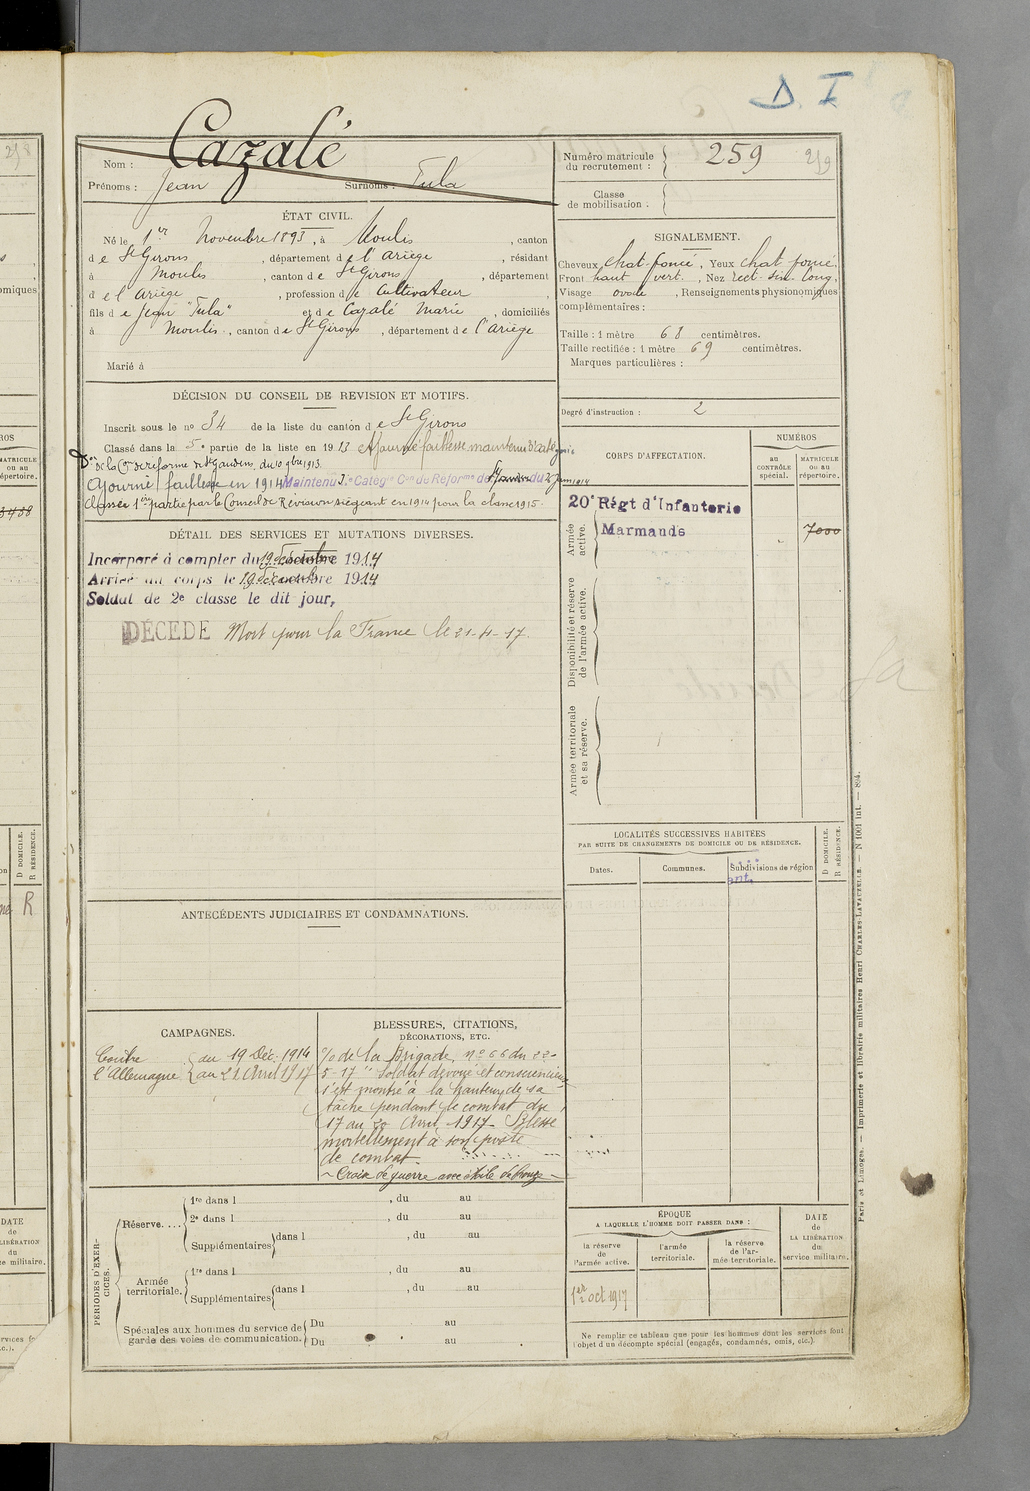 D. I
Nom : Cazalé
Prénoms : Jean Surnoms : Tula
Numéro matricule du recrutement : 259
259
Classe de mobilisation :
ÉTAT CIVIL.
Né le 1er Novembre 1893, à Moulis, canton
de St Girons, département de l'Ariège, résidant
à Moulis, canton de St Girons, département
de l'Ariège, profession de Cultivateur,
fils de Jean "Tula" et de Cazalé Marie, domiciliés
à Moulis, canton de St Girons, département de l'Ariège
Marié à
SIGNALEMENT.
Cheveux chat-foncé, Yeux chat foncé.
Front haut vert., Nez rect-sin. long,
Visage ovale, Renseignements physionomiques
complémentaires :
Taille : 1 mètre 68 centimètres.
Taille rectifiée : 1 mètre 69 centimètres.
Marques particulières :
Degré d'instruction : 2
DÉCISION DU CONSEIL DE REVISION ET MOTIFS.
Inscrit sous le no 34 de la liste du canton de St Girons
Classé dans la 5e partie de la liste en 1913 Ajourné faiblesse maintenu
de la Con de réforme de St Gaudens du 10 9bre 1913.
Ajourné faiblesse en 1914 Maintenu Catég Con de Réforme de du 2 Juin 1914
Classé 1ère partie par le Conseil de Révision siégeant en 1914 pour la classe 1915.
DÉTAIL DES SERVICES ET MUTATIONS DIVERSES.
Incorporé à compter du 19 Décembre 1914
Arrivé au corps le 19 Décembre 1914
Soldat de 2e classe le dit jour,
DÉCÉDÉ Mort pour la France le 21-4-17.
CORPS D'AFFECTATION.
NUMÉROS
au CONTRÔLE spécial.
MATRICULE ou au répertoire.
Armée active.
20e Régt d'Infanterie
Marmande
7000
Disponibilité et réserve de l'armée active.
Armée territoriale et sa réserve.
LOCALITÉS SUCCESSIVES HABITÉES
PAR SUITE DE CHANGEMENTS DE DOMICILE OU DE RÉSIDENCE.
Dates.
Communes.
Subdivisions de région
D DOMICILE.
R RÉSIDENCE.
ANTÉCÉDENTS JUDICIAIRES ET CONDAMNATIONS.
CAMPAGNES.
Contre l'Allemagne
du 19 Déc. 1914
au 21 Avril 1917
BLESSURES, CITATIONS,
DÉCORATIONS, ETC.
% de la Brigade, no 66 du 22-
5-17 "Soldat dévoué et consciencieux
s'est montré à la hauteur de sa
tâche pendant le combat du
17 au 20 Avril 1917. Blessé
mortellement à son poste
de combat.
Croix de guerre avec étoile de bronze
PÉRIODES D'EXERCICES.
Réserve....
1re dans l , du au
2e dans l , du au
Supplémentaires dans l , du au
Armée territoriale.
1re dans l , du au
Supplémentaires dans l , du au
Spéciales aux hommes du service de
garde des voies de communication.
Du au
Du au
ÉPOQUE
A LAQUELLE L'HOMME DOIT PASSER DANS :
la réserve de l'armée active.
l'armée territoriale.
la réserve de l'armée territoriale.
DATE de LA LIBÉRATION du service militaire.
1er oct 1917
Ne remplir ce tableau que pour les hommes dont les services font
l'objet d'un décompte spécial (engagés, condamnés, omis, etc.).
Paris et Limoges. — Imprimerie et librairie militaires Henri CHARLES-LAVAUZELLE. — N 1001 int. — 894.